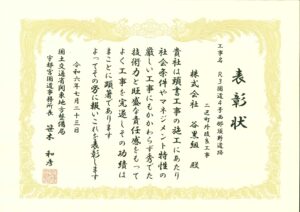 表彰状
工事名
R3国道4号西那須野道路
二区町外改良工事
株式会社 谷黒組 殿
貴社は頭書工事の施工にあたり
社会条件やマネジメント特性の
厳しい工事にもかかわらず秀でた
技術力と旺盛な責任感をもって
よく工事を完遂しその功績は
まことに顕著であります
よってその労に報いこれを表彰します
令和六年七月二十三日
国土交通省関東地方整備局
宇都宮国道事務所長 笹木 和彦